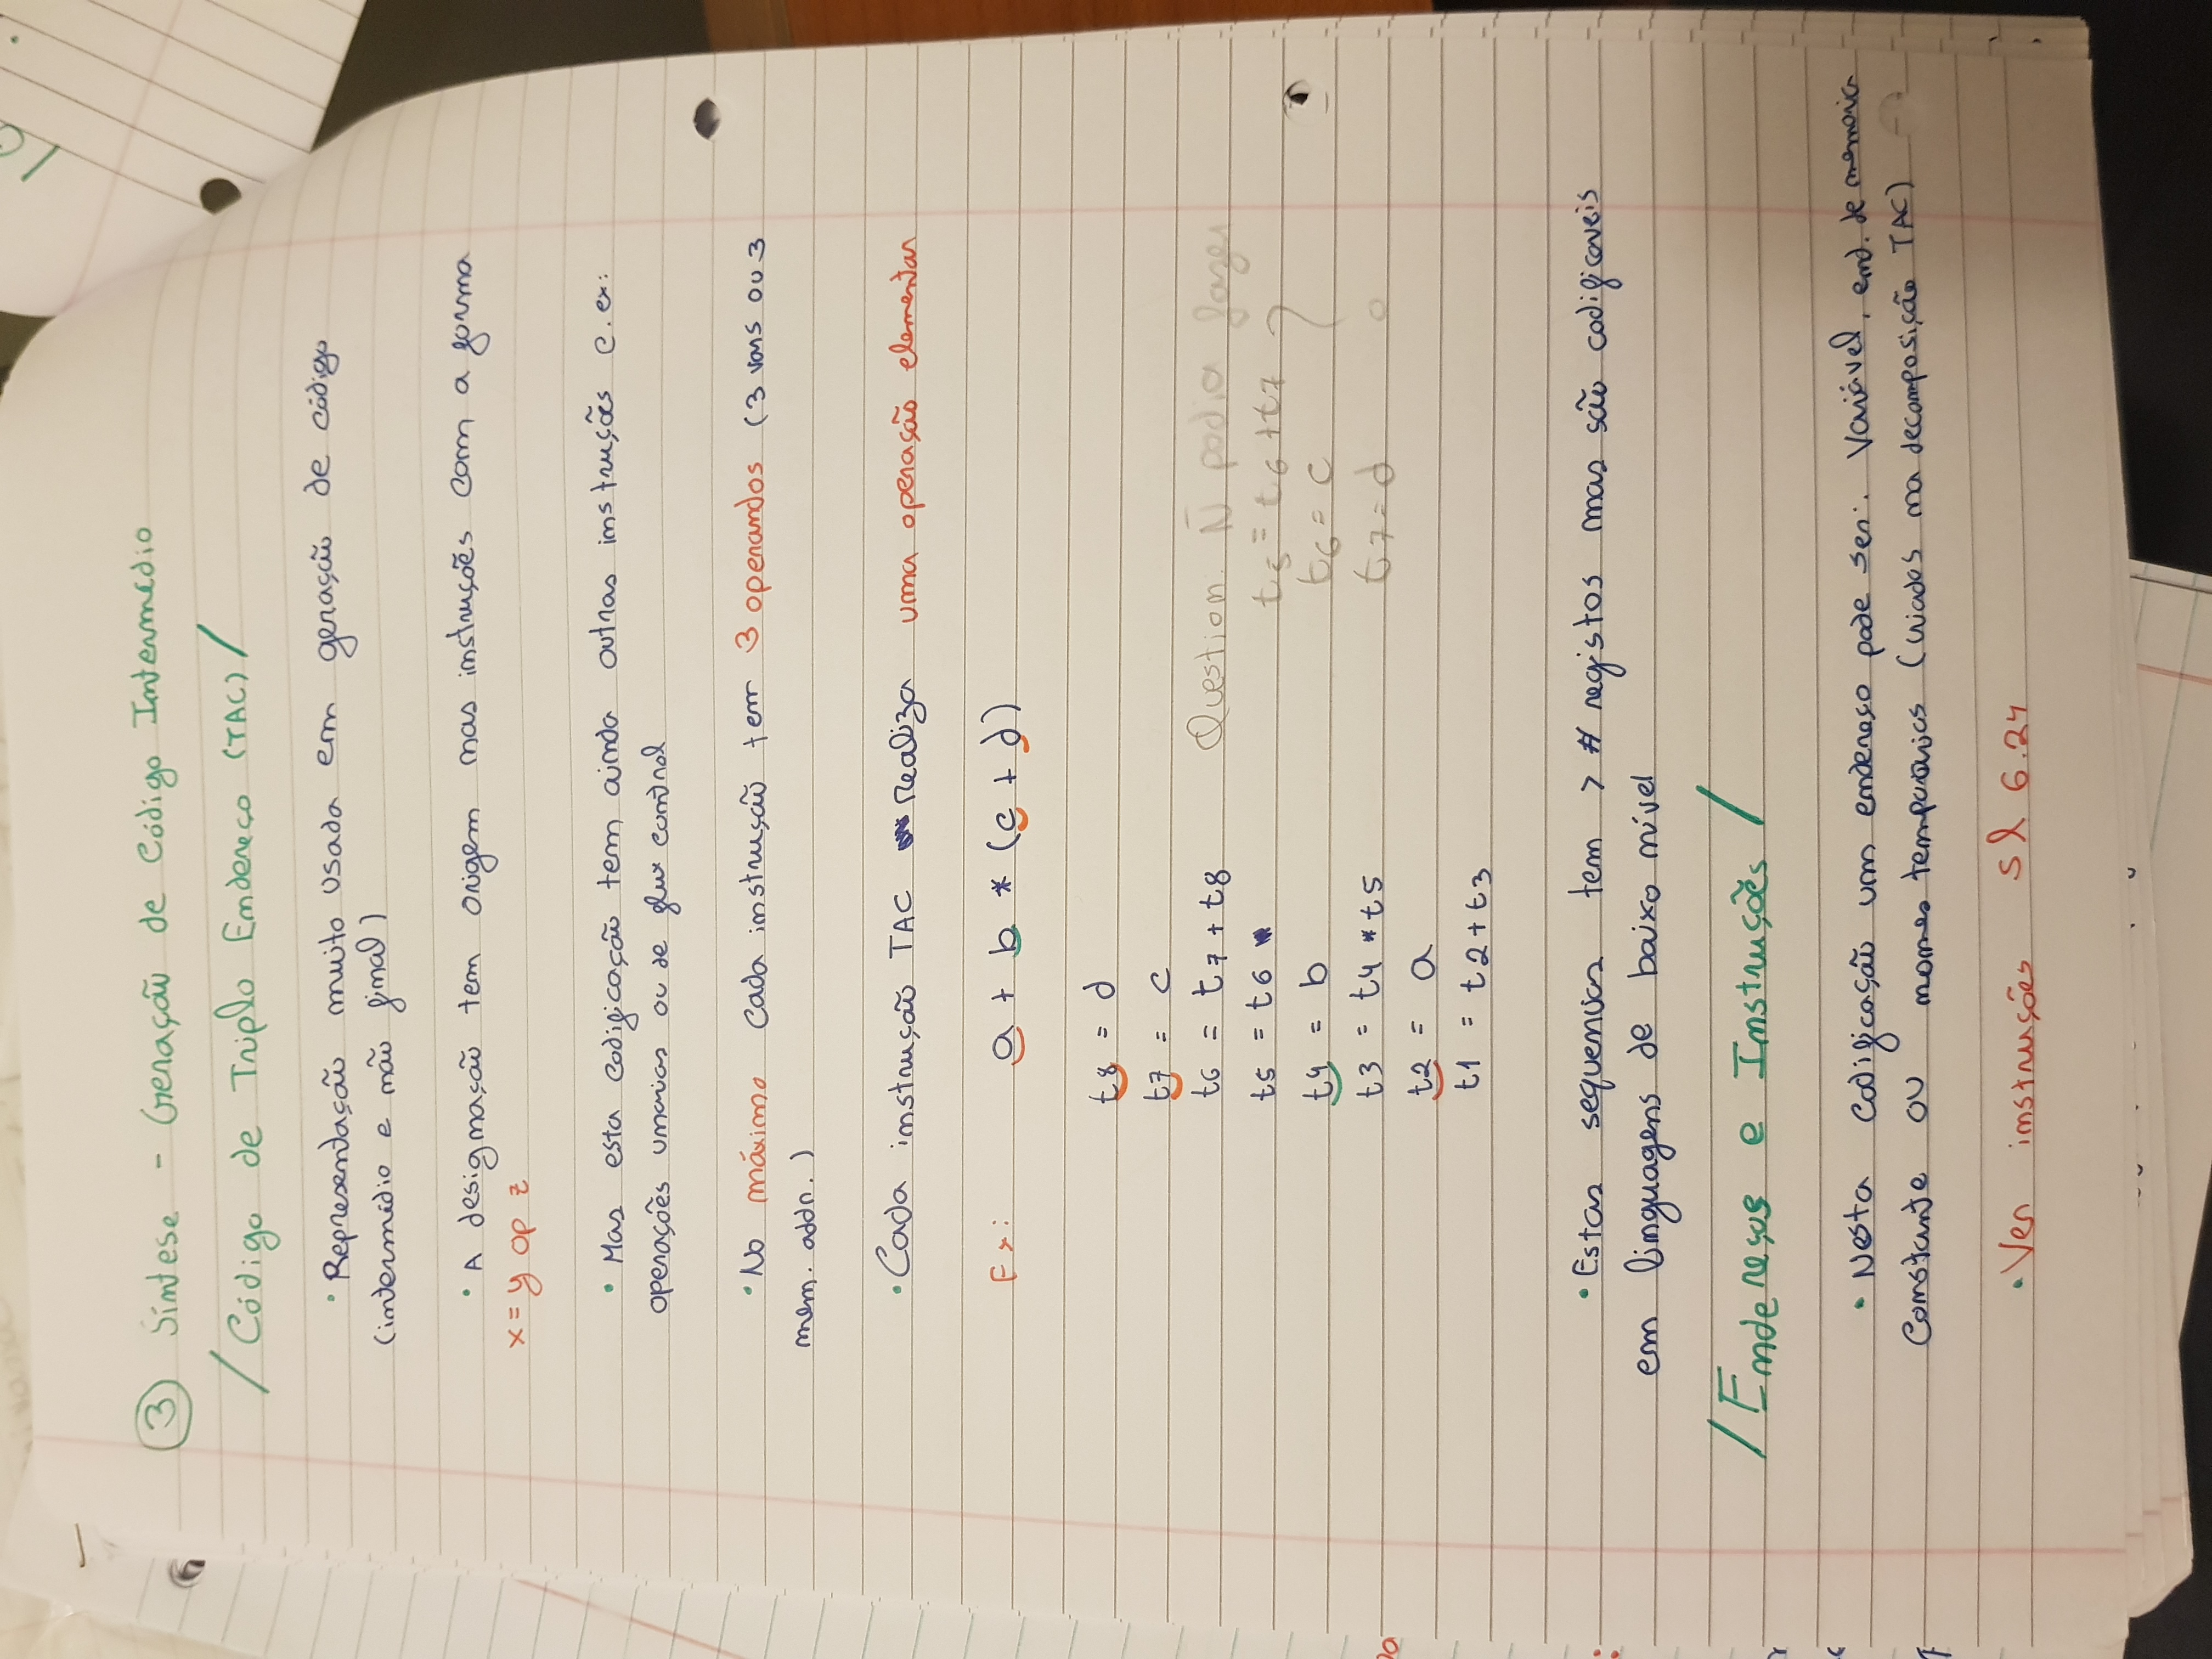 3 Síntese - Geração de Código Intermédio
/ Código de Triplo Endereço (TAC) /
• Representação muito usada em geração de código
(intermédio e não final)
• A designação tem origem nas instruções com a forma
x = y op z
• Mas esta codificação tem ainda outras instruções e.ex:
operações unarias ou de flux control
• No máximo cada instrução tem 3 operandos (3 vars ou 3
mem. addr.)
• Cada instrução TAC realiza uma operação elementar
Ex: a + b * (c + d)
t8 = d
t7 = c
t6 = t7 + t8 Question: Ñ podia fazer
t5 = t6 t5 = t6 + t7
t4 = b t6 = c ?
t3 = t4 * t5 t7 = d
t2 = a
t1 = t2 + t3
• Estas sequencias tem > # registos mas são codificaveis
em linguagens de baixo nível
/ Endereços e Instruções /
• Nesta codificação um endereço pode ser: Variável, end. de memoria
Constante ou nomes temporarios (criados na decomposição TAC)
• Ver instruções sl 6.24